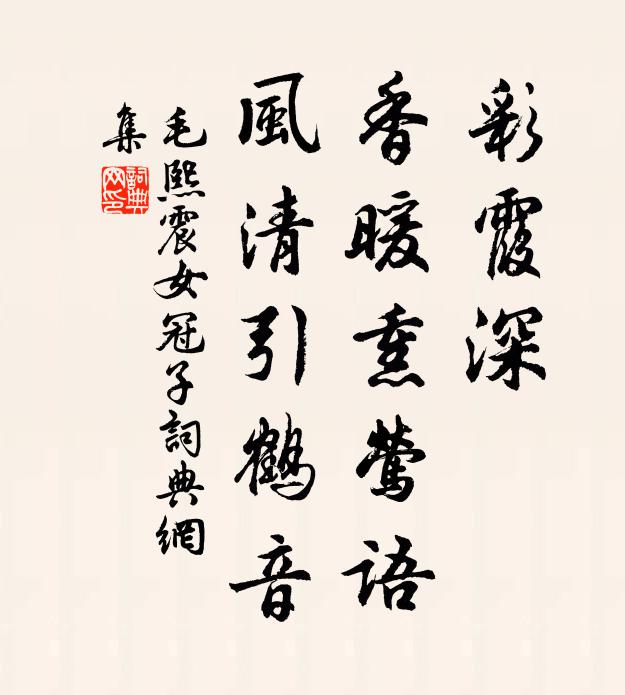 彩霞深
香暖熏鶯語
風清引鶴音
毛熙震女冠子詞典網
集
詞典
網印